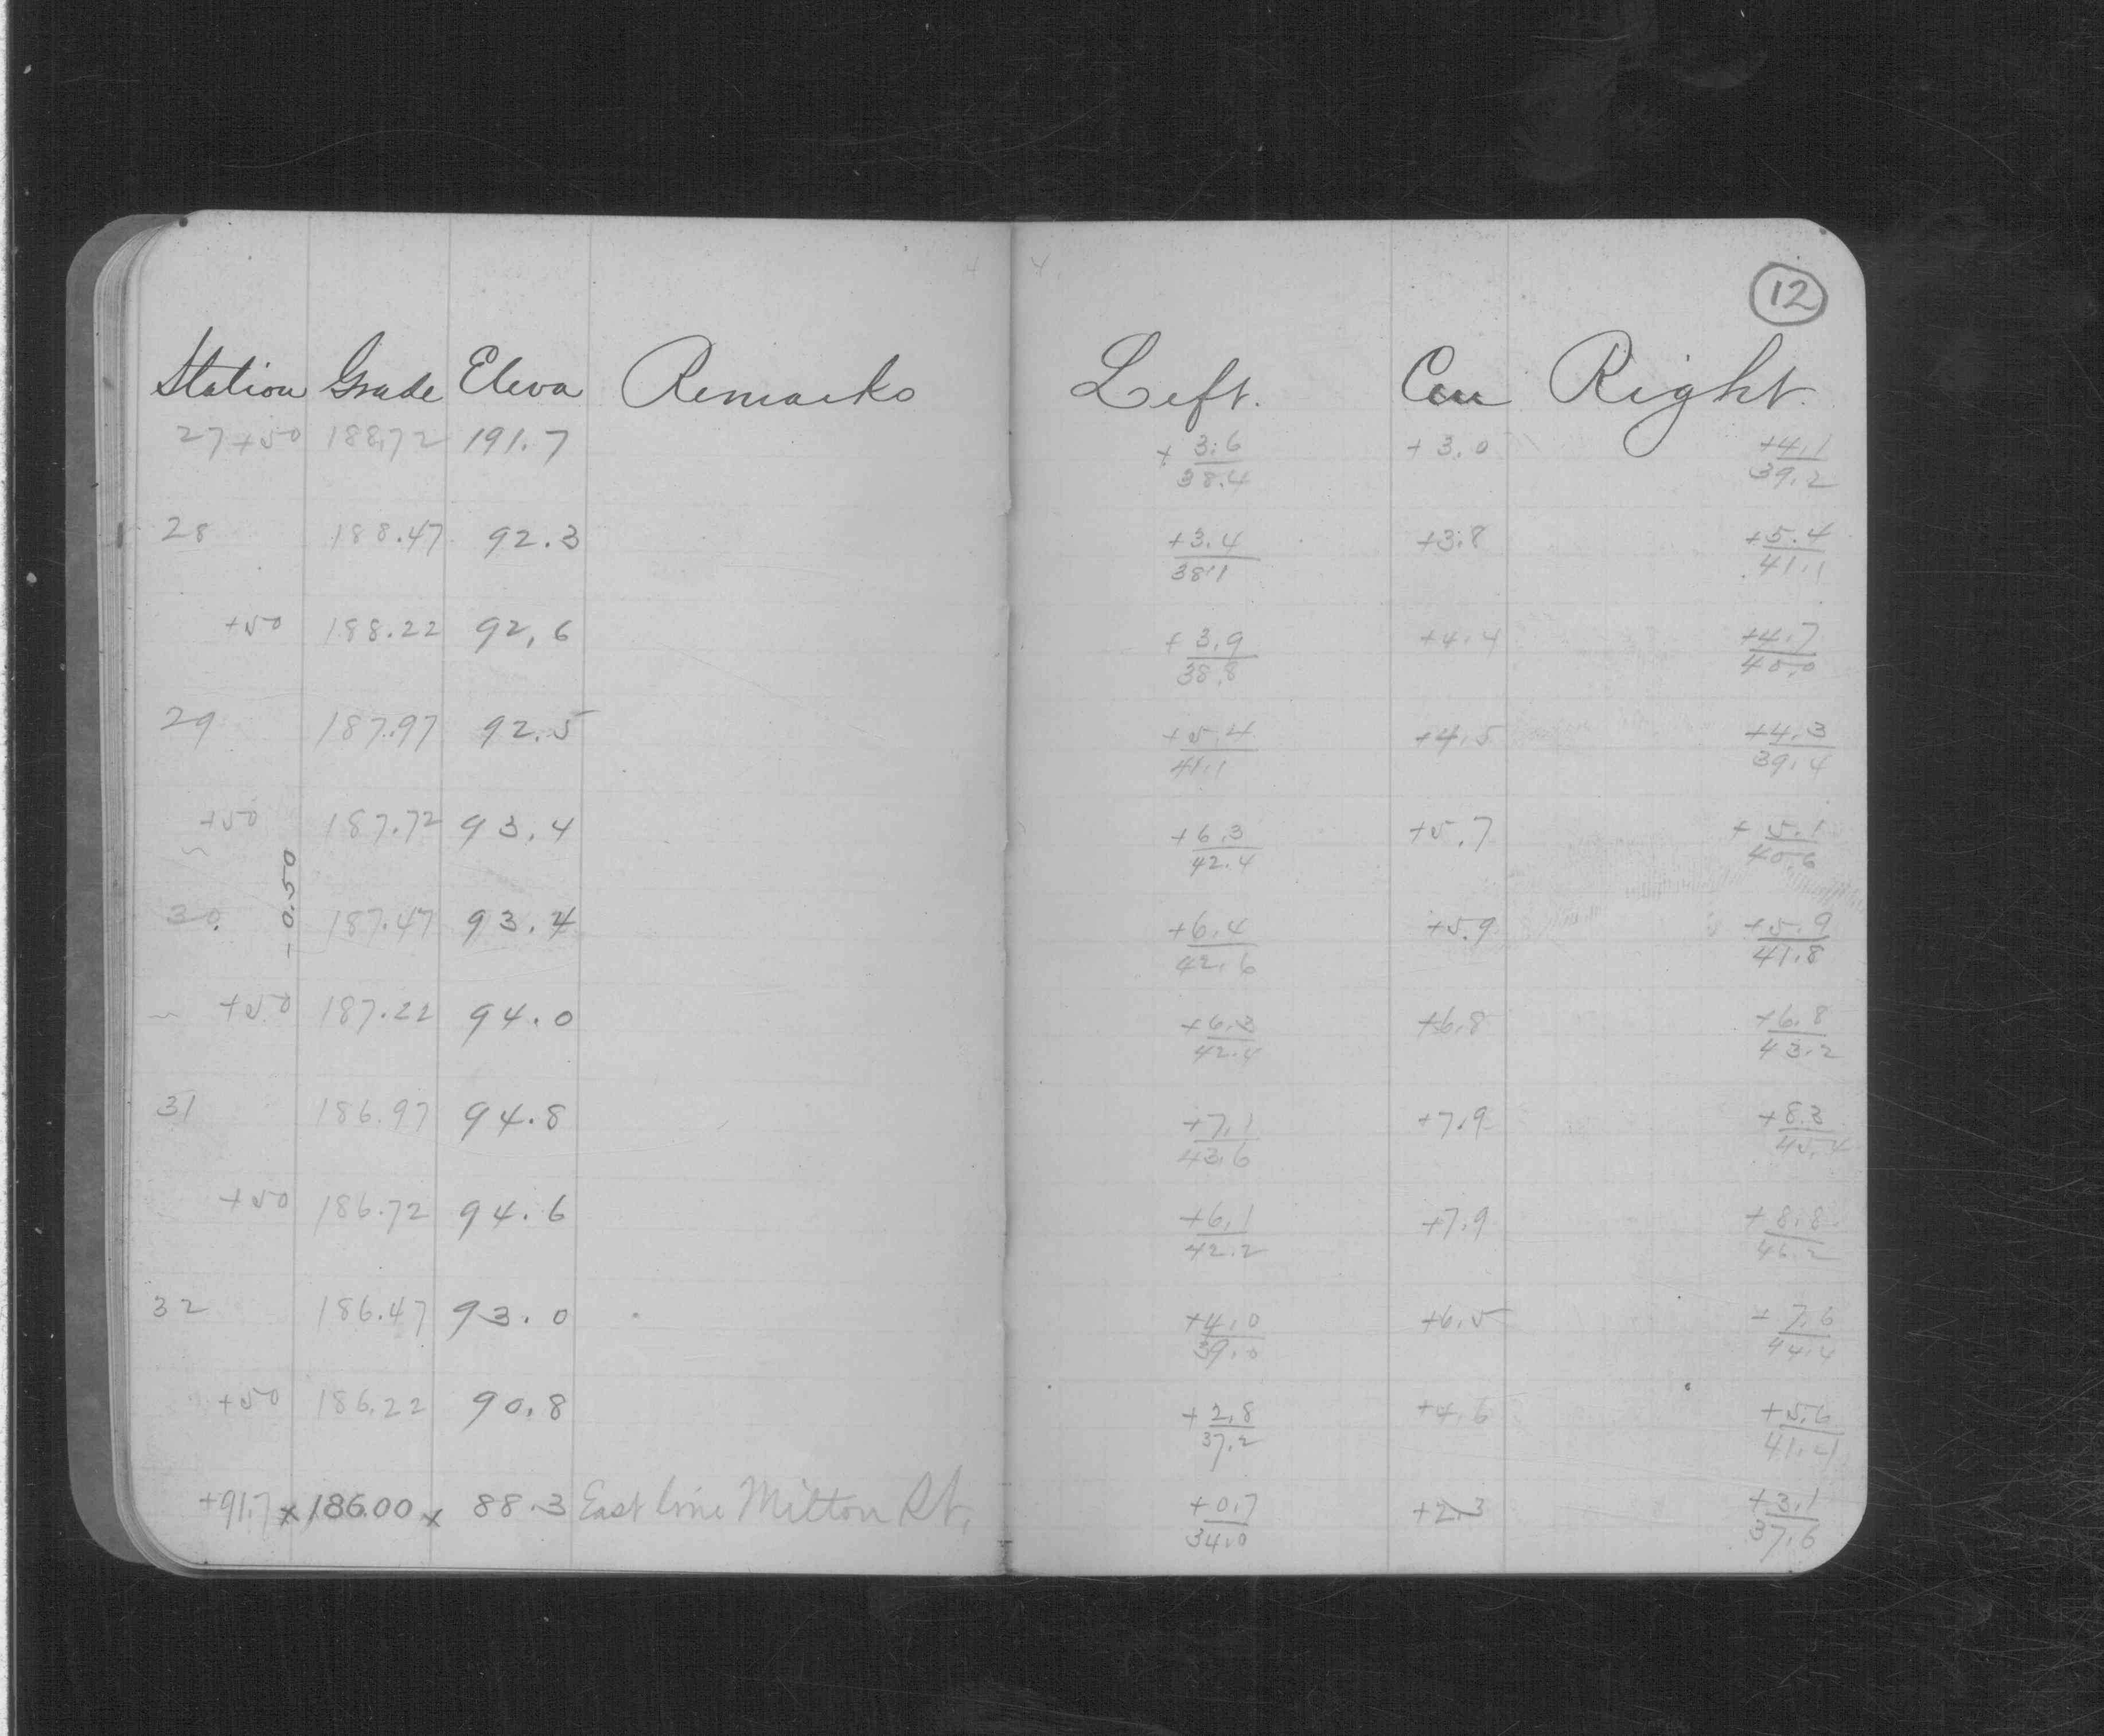 12
Station Grade Eleva Remarks Left. Cen Right.
27+50 188.72 191.7 +3.6/38.4 +3.0 +4.1/39.2
28 188.47 92.3 +3.4/38.1 +3.8 +5.4/41.1
+50 188.22 92.6 +3.9/38.8 +4.4 +4.7/40.0
29 187.97 92.5 +5.4/41.1 +4.5 +4.3/39.4
+50 187.72 93.4 +6.3/42.4 +5.7 +5.1/40.6
-0.50
30. 187.47 93.4 +6.4/42.6 +5.9 +5.9/41.8
+50 187.22 94.0 +6.3/42.4 +6.8 +6.8/43.2
31 186.97 94.8 +7.1/43.6 +7.9 +8.3/45.4
+50 186.72 94.6 +6.1/42.2 +7.9 +8.8/46.2
32 186.47 93.0 +4.0/39.0 +6.5 +7.6/44.4
+50 186.22 90.8 +2.8/37.2 +4.6 +5.6/41.4
+91.7 x 186.00 x 88.3 East line Milton Rd. +0.7/34.0 +2.3 +3.1/37.6